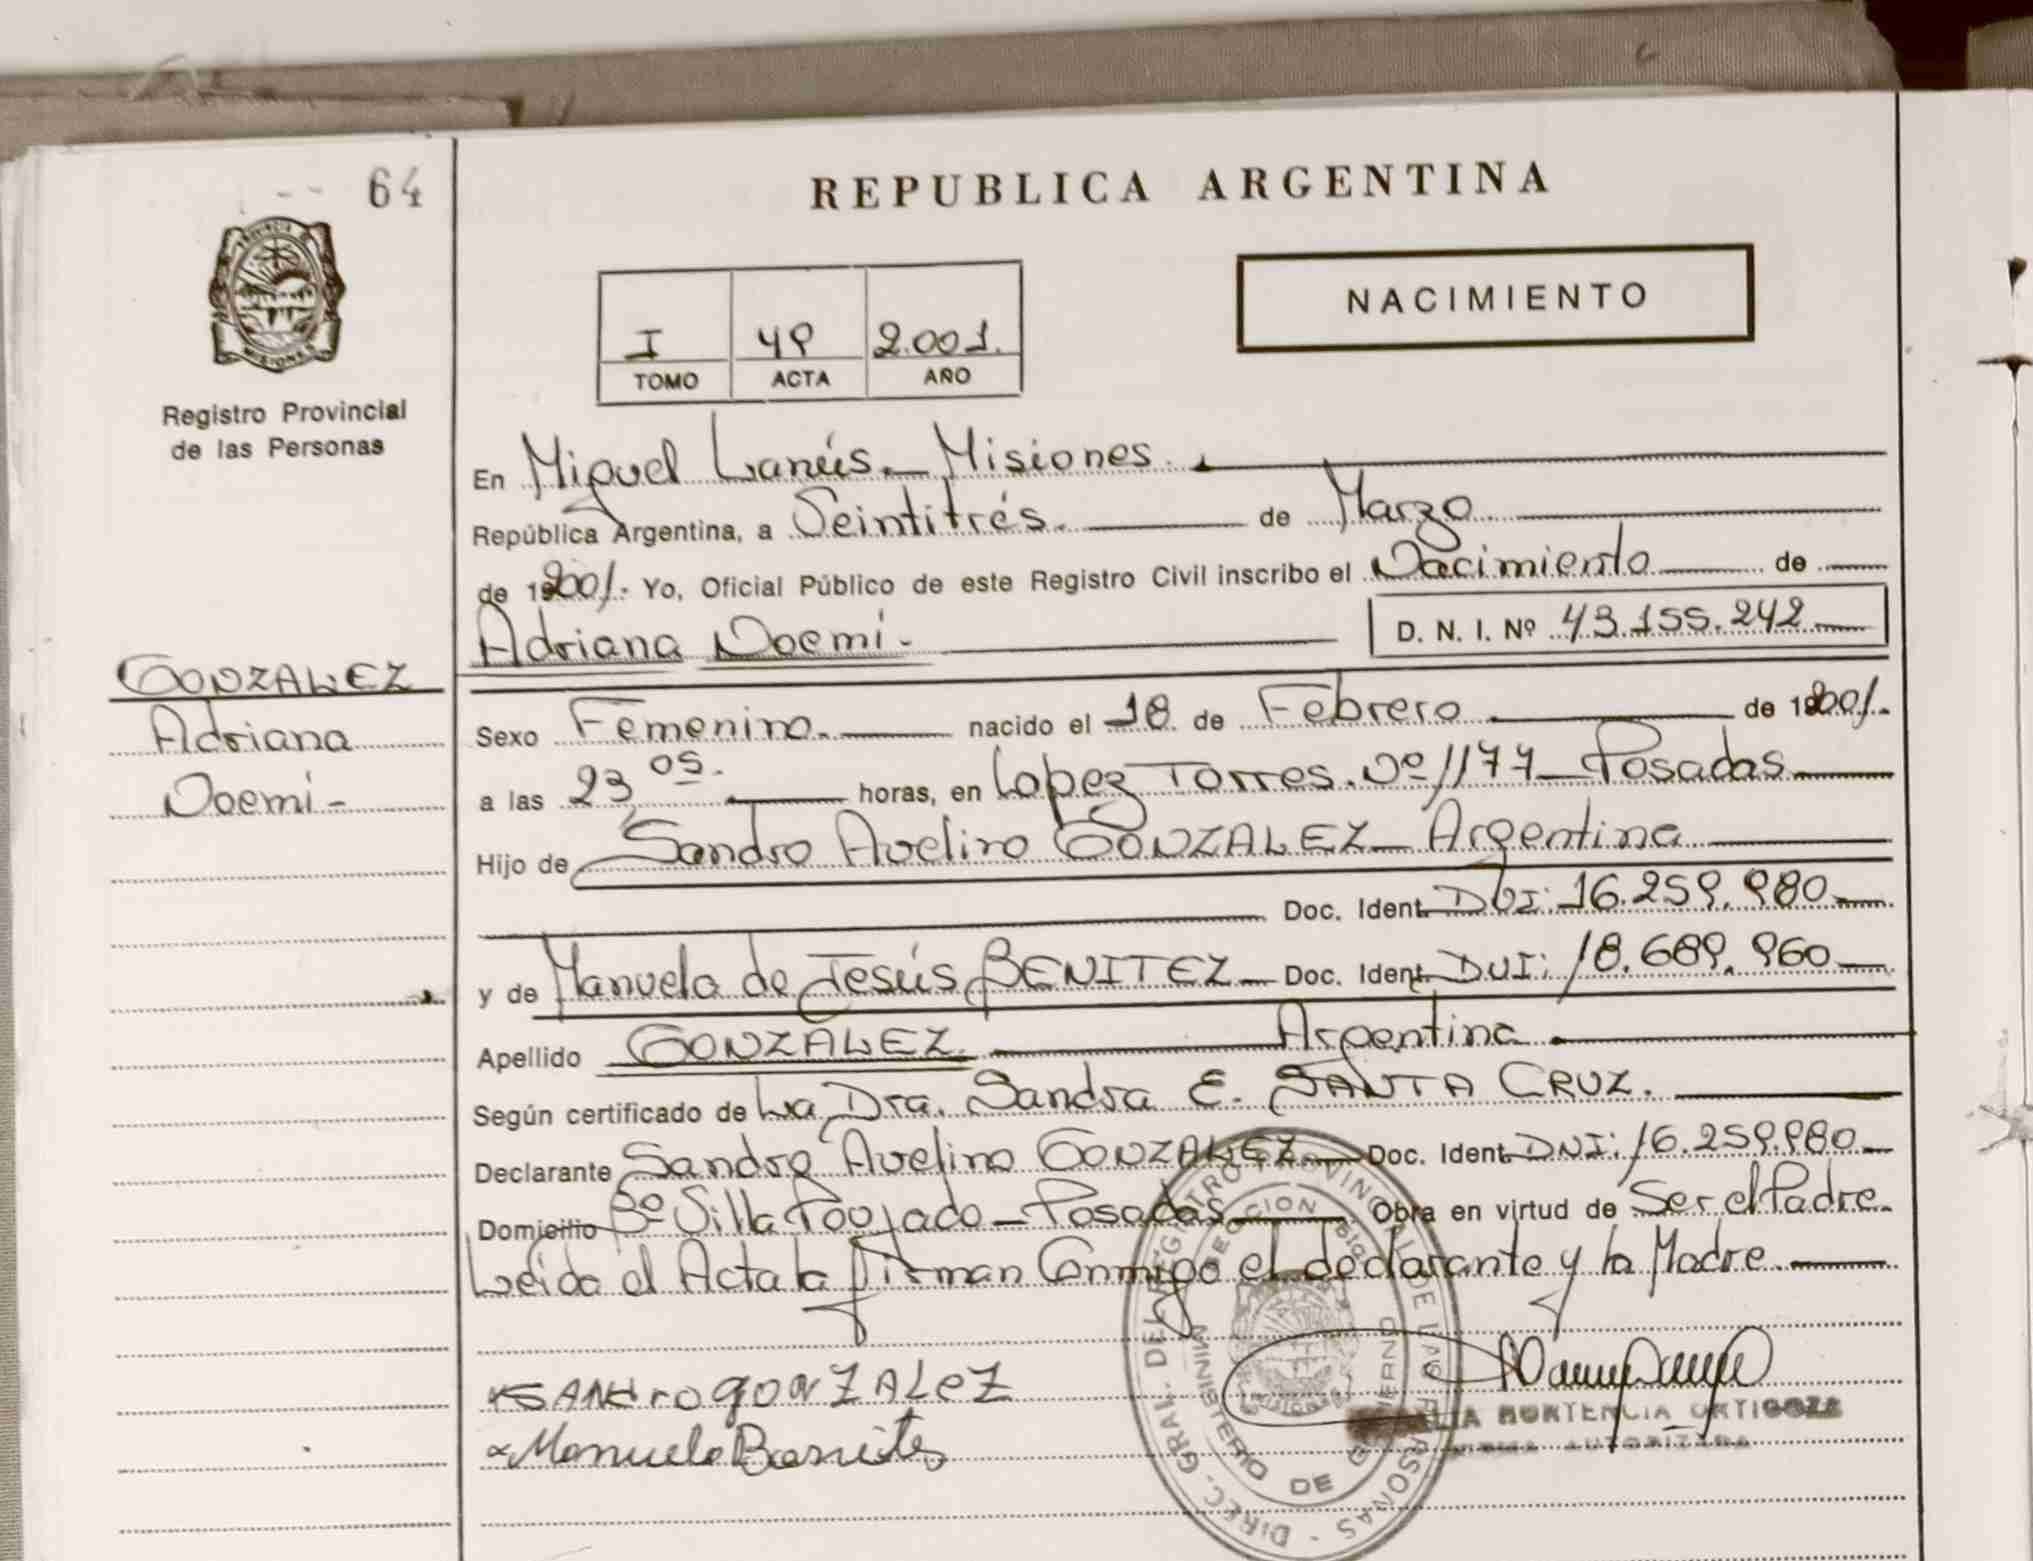 64
REPUBLICA ARGENTINA
NACIMIENTO
I 49 2.001.
TOMO ACTA AÑO
Registro Provincial
de las Personas
En Miguel Lanús - Misiones.
República Argentina, a Veintitrés. de Marzo
de 2001. Yo, Oficial Público de este Registro Civil inscribo el Nacimiento de
Adriana Noemí - D. N. I. Nº 43.155.242
GONZALEZ
Adriana
Noemí -
Sexo Femenino. nacido el 18 de Febrero de 2001.
a las 23,05. horas, en Lopez Torres. Nº 1177 - Posadas
Hijo de Sandro Avelino GONZALEZ - Argentina
Doc. Ident. DNI: 16.259.980
y de Manuela de Jesús BENITEZ - Doc. Ident. DNI: 18.689.960
Apellido GONZALEZ. Argentina.
Según certificado de La Dra. Sandra E. SANTA CRUZ.
Declarante Sandro Avelino GONZALEZ - Doc. Ident. DNI: 16.259.980
Domicilio Bº Villa Poujado - Posadas Obra en virtud de Ser el Padre.
Leida el Acta la firman Conmigo el declarante y la Madre.
SANdro gONZALeZ
Manuela Benitez
HORTENCIA ORTIGOZA
FIRMA AUTORIZADA
DIREC. GRAL. DEL REGISTRO PROVINCIAL DE LAS PERSONAS
MINISTERIO DE GOBIERNO